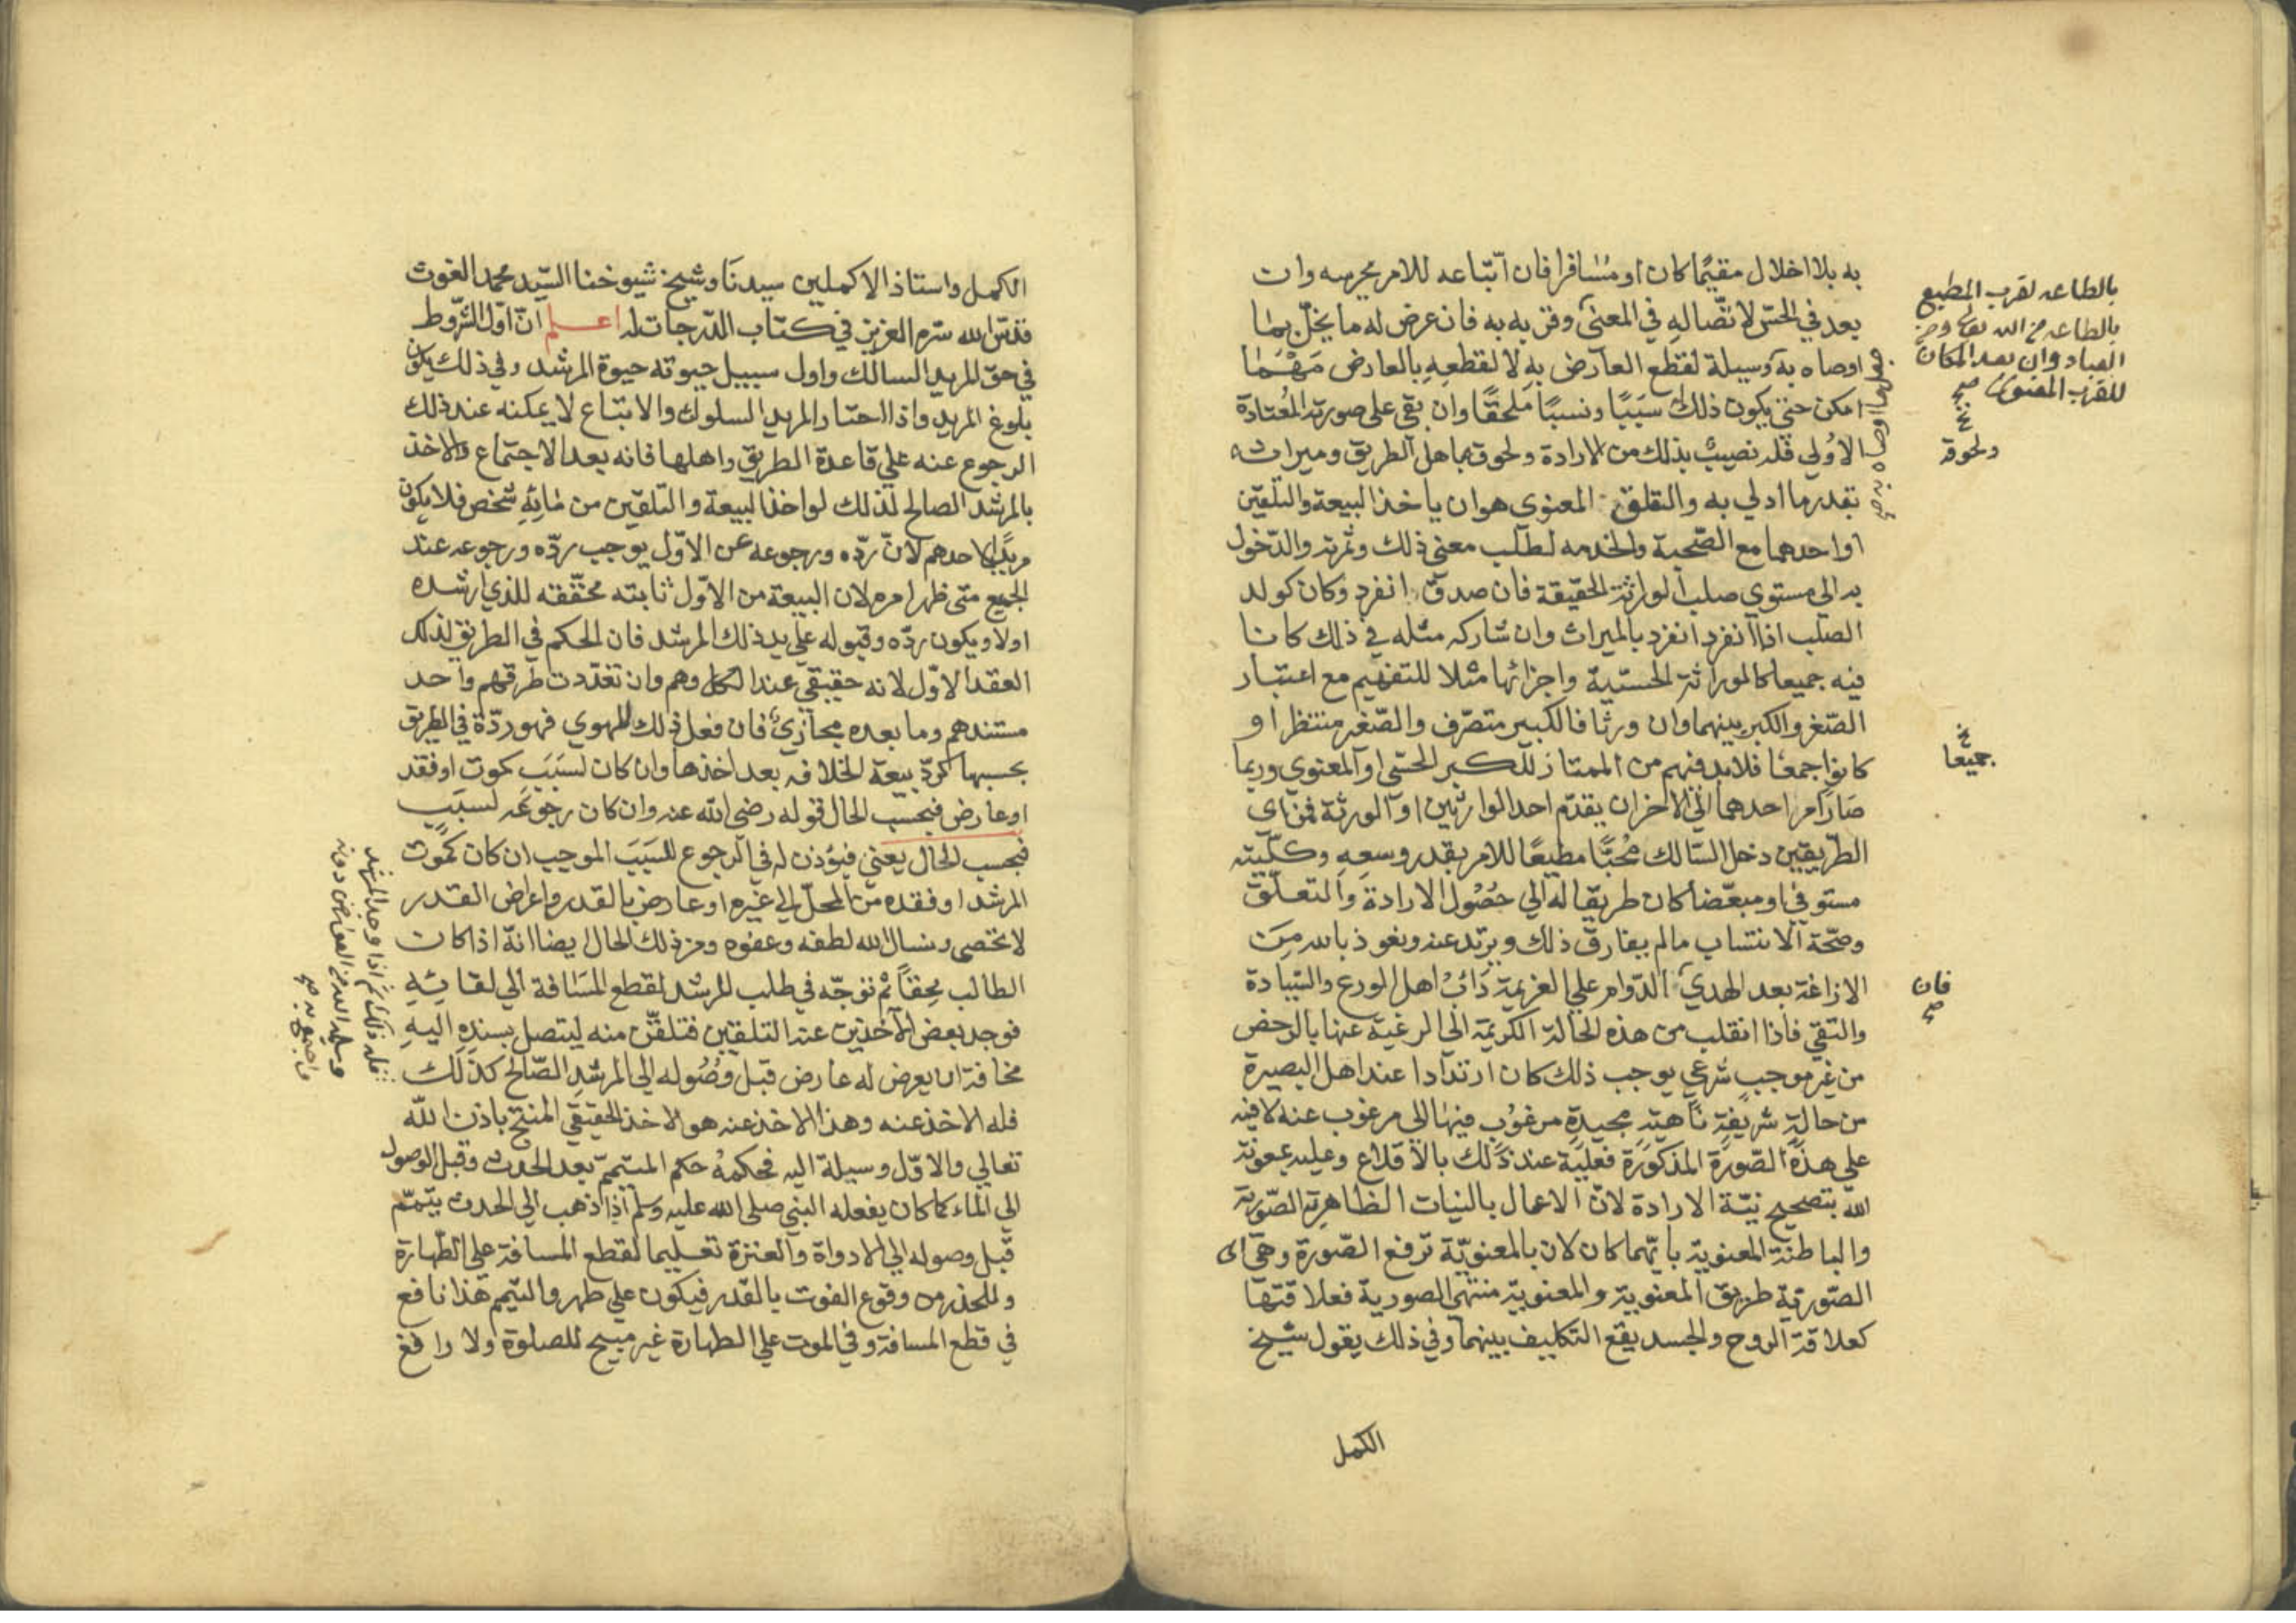 به بلا اخلال مقيمًا كان او مسافرا فان اتباعه للامر يحرسه وان
بعد في الحسّ لاتّصاله في المعنى وقربه به فان عرض له ما يخلّ بما
اوصاه به وسيلة لقطع العارض به لا لقطعه بالعارض مَهْمَا
امكن حتى يكون ذلك سببًا ونسبًا ملحقًا وان بقي على صورته المعتادة
الاولي فله نصيب بذلك من الارادة ولحوق باهل الطريق وميراثه
بقدر ما ادلي به والتعلق المعنوي هو ان ياخذ البيعة والتلقين
او احدهما مع الصّحبة والخدمه لطلب معنى ذلك وثمرته والدّخول
به الى مستوي صلب الوراثة الحقيقة فان صدق انفرد وكان كولد
الصلب اذا انفرد انفرد بالميراث وان شاركه مثله في ذلك كانا
فيه جميعا كالموراثة الحسّية واجزائها مثلا للتفهيم مع اعتبار
الصّغر والكبر بينهما وان ورثا فالكبير متصرّف والصّغير منتظر او
كانوا جمعًا فلابد فيهم من الممتاز للكبر الحسّي او المعنوي وربما
صار امر احدهما الي الاخر ان يقدّم احد الوارثين او الورثة فمن اى
الطّريقين دخل السّالك مُحبًّا مطيعًا للامر بقدر وسعه وكلّيته
مستوفي او مبعّضا كان طريقا له الي حُصُول الارادة والتعلّق
وصحّة الانتساب ما لم يفارق ذلك ويرتد عنه ونعوذ بالله مِن
الازاغة بعد الهدي الدّوام علي العزيمة دَابُ اهل الورع والسّيادة
والتقي فاذا انقلب من هذه الحالة الكريمة الي الرغبة عنها بالرخص
من غير موجب شرعي يوجب ذلك كان ارتدادا عند اهل البصيرة
من حالةٍ شريفةٍ ناهيةٍ مجيدةٍ مرغوب فيها الي مرغوب عنه لا فيه
علي هذه الصّورة المذكورة فعليه عند ذلك بالاقلاع وعليه بمعونة
الله بتصحيح نيّة الارادة لانّ الاعمال بالنيات الظاهرة الصّورية
والباطنة المعنوية بايّهما كان لان بالمعنويّة ترفع الصّورة وهى اى
الصّورية طريق المعنوية والمعنوية منتهى الصورية فعلاقتها
كعلاقة الروح والجسد يقع التكليف بينهما وفي ذلك يقول شيخ
الكمل
بالطاعه لقرب المطيع
بالطاعه من الله تعالى ومن
العباد وان بعد المكان
للقرب المعنوى صح
خ
ولحوقه
جعل ما اوصاه به صح
خ
جميعا
فان
صح
الكمل واستاذ الاكملين سيدنا وشيخ شيوخنا السّيد محمد الغوث
قدّس الله سرّه العزيز في كتاب الدّرجات له اعلم انّ اوّل الشّروط
في حق المريد السالك واول سبيل حيوته حيوة المرشد وفي ذلك يكون
بلوغ المريد واذا اختار المريد السلوك والاتباع لا يمكنه عند ذلك
الرجوع عنه علي قاعدة الطريق واهلها فانه بعد الاجتماع والاخذ
بالمرشد الصالح لذلك لو اخذ البيعة والتلقين من مايةِ شخص فلا يكون
مريدًا لاحدهم لانّ ردّه ورجوعه عن الاوّل يوجب ردّه ورجوعه عند
الجميع متى ظهر امره لان البيعة من الاوّل ثابته محقّقه للذي ارشده
اولا ويكون ردّه وقبوله علي يد ذلك المرشد فان الحكم في الطريق لذلك
العقد الاوّل لانه حقيقي عند الكل وهم وان تعدّدت طرقهم واحد
مستندهم وما بعده مجازيّ فان فعل ذلك للهوي فهو ردّة في الطريق
بحسبها كردّ بيعة الخلافه بعد اخذها وان كان لسبَب كموت او فقد
او عارض فبحسب الحال قوله رضي الله عنه وان كان رجوعه لسبَب
فبحسب الحال يعني فيؤذن له في الرجوع للسَبَب الموجب ان كان كموت
المرشد او فقده من المحلّ الي غيره او عارض بالقدر واعراض القدر
لا تحصى ونسال الله لطفه وعفوه ومن ذلك الحال ايضا انّه اذا كان
الطالب محقاً ثم توجّه في طلب المرشد لقطع المسَافة الي لقائِهِ
فوجد بعض الآخذين عند التلقين فتلقّن منه ليتصل بسنده اليهِ
مخافة ان يعرض له عارض قبل وصُوله الي المرشد الصّالح كذلك
فله الاخذ عنه وهذا الاخذ عنه هو الاخذ الحقيقي المنتج باذن اللّه
تعالي والاوّل وسيلة اليه فحكمهُ حكم المتيمم بعد الحدث وقبل الوصول
الي الماء كما كان يفعله النبي صلى الله عليه وسلم اذا ذهب الي الحدث يتيمّم
قبل وصوله الي الادواة والعنزة تعليما لقطع المسافة علي الطّهارة
وللحذر من وقوع الفوت بالقدر فيكون علي طهر والتيمم هذا نافع
في قطع المسافة وفي الموت علي الطهارة غير مبيح للصلوة ولا رافع
فله ذلك ثم اذا وجد المرشد
وسلمه الله من العوارض دونه
واجتمع به صح